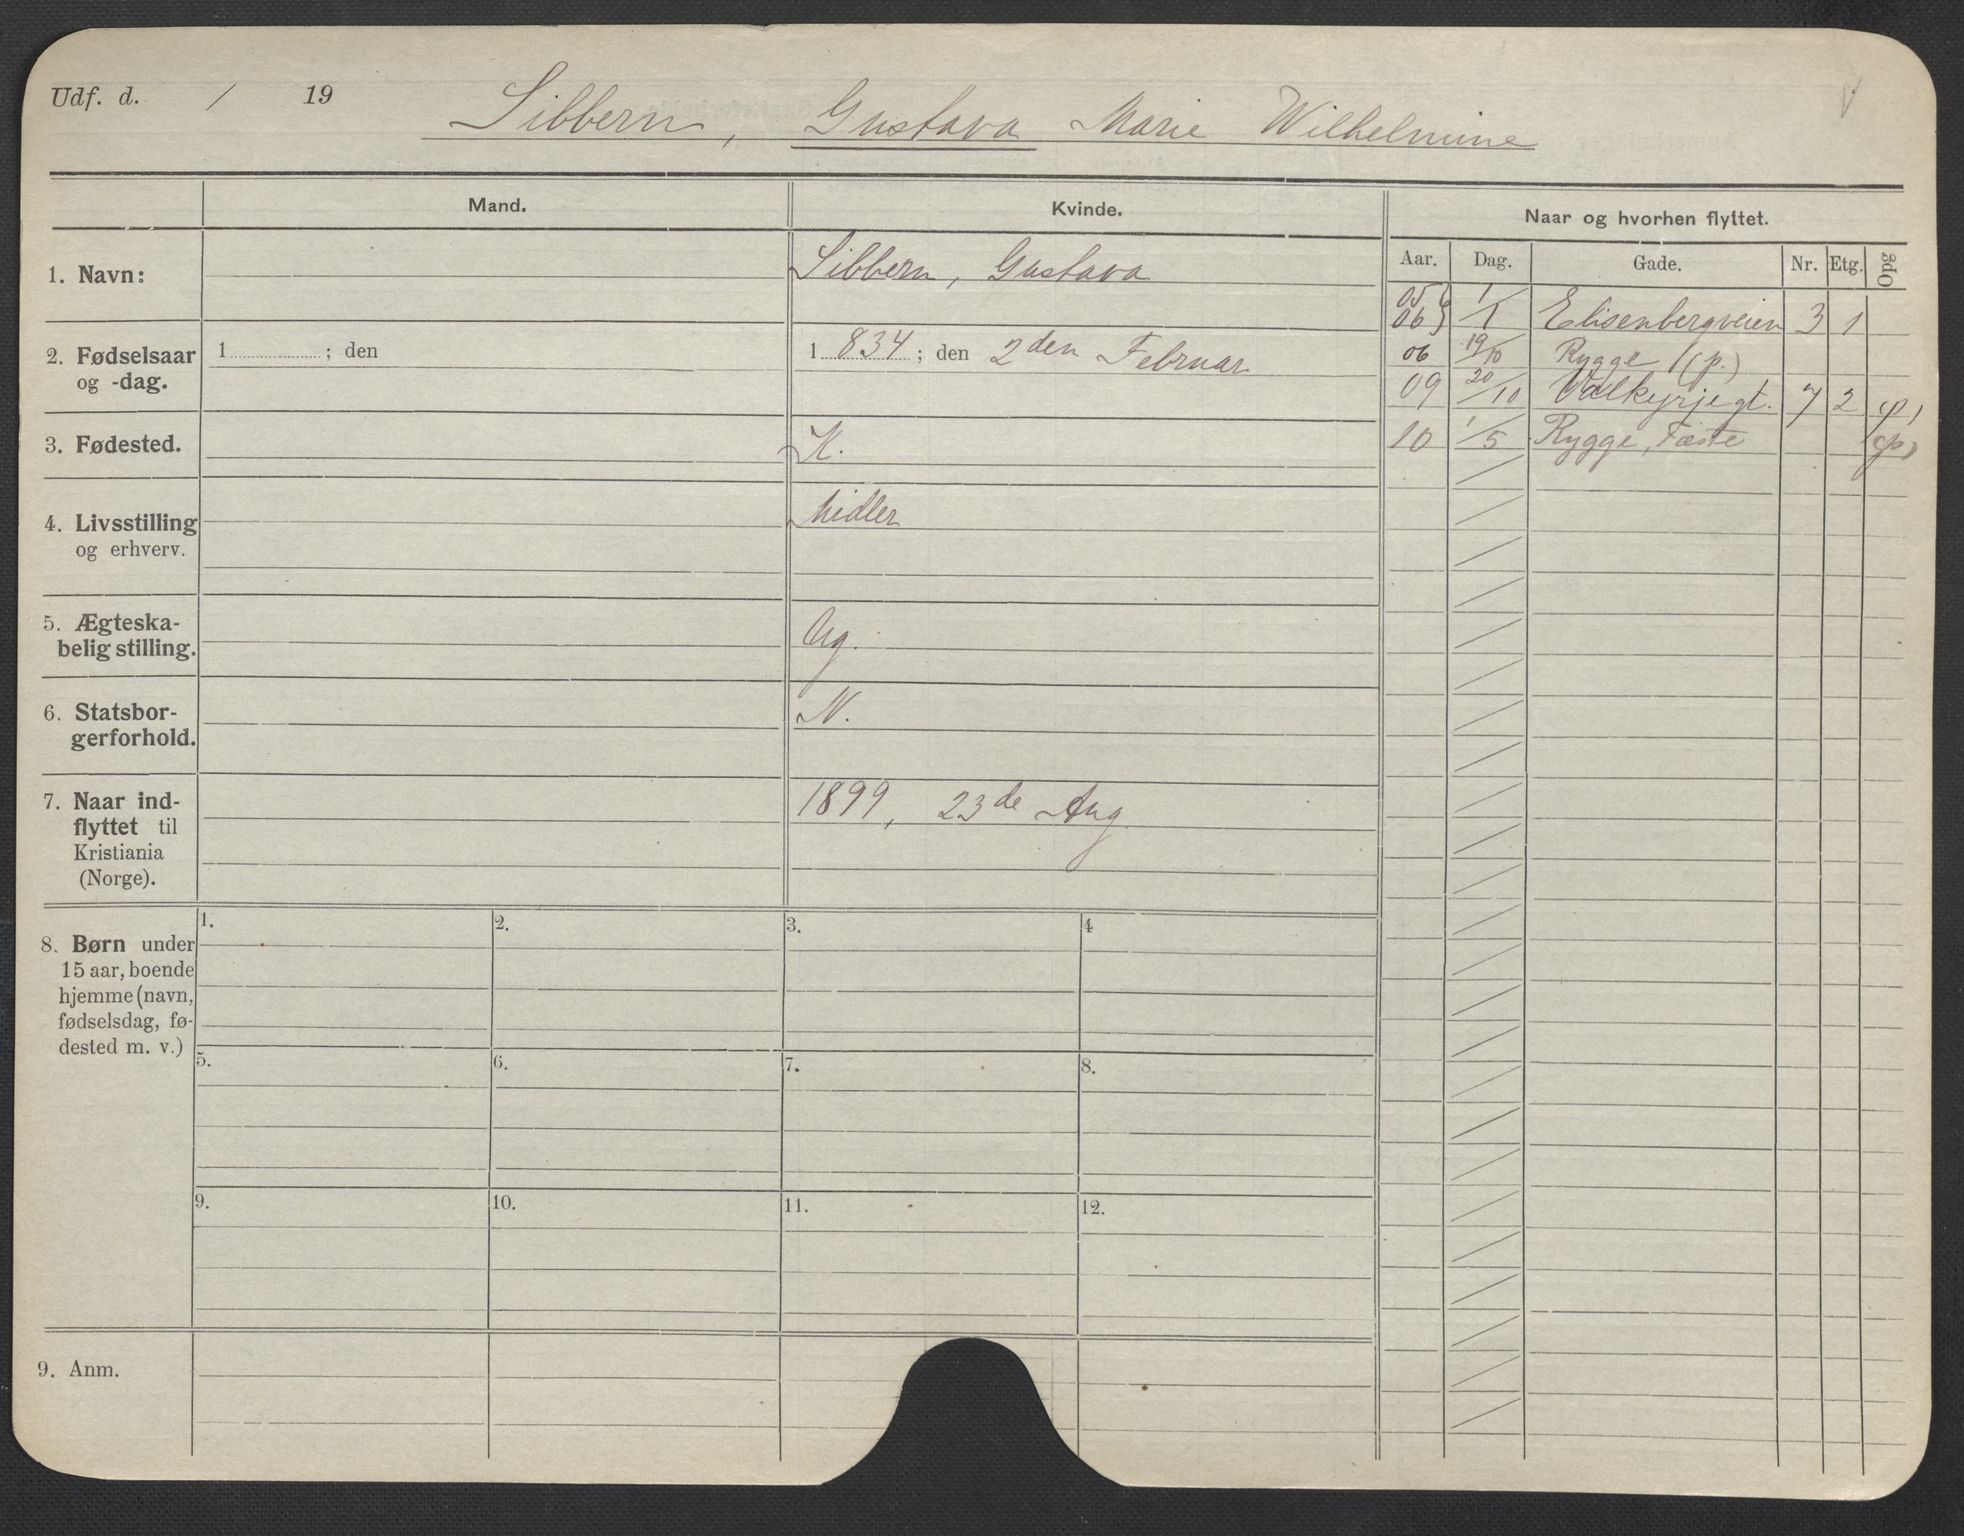 Udf. d. / 19 Sibbern, Gustava Marie Wilhelmine
Mand. Kvinde. Naar og hvorhen flyttet.
Aar. Dag. Gade. Nr. Etg. Opg
1. Navn: Sibbern, Gustava
05 } 1/1 Elisenbergveien 3 1
06 }
2. Fødselsaar 1 ; den 1 834 ; den 2den Februar
og -dag.
06 19/10 Rygge (p.)
09 20/10 Valkyrjegt. 7 2 (p)
3. Fødested. K.
10 1/5 Rygge, Fæste (p)
4. Livsstilling Midler
og erhverv.
5. Ægteska-
belig stilling. Ug.
6. Statsbor- N.
gerforhold.
7. Naar ind- 1899, 23de Aug
flyttet til
Kristiania
(Norge).
8. Børn under
15 aar, boende
hjemme (navn,
fødselsdag, fø-
dested m. v.)
1. 2. 3. 4
5. 6. 7. 8.
9. 10. 11. 12.
9. Anm.